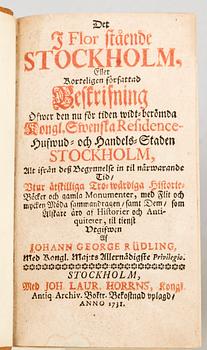 Det
I Flor stående
STOCKHOLM,
Eller
Korteligen författad
Beskrifning
Öfwer den nu för tiden widt-berömda
Kongl. Swenska Residence-
Hufwud- och Handels-Staden
STOCKHOLM,
Alt ifrån dess Begynnelse in til närwarande
Tid/
Utur åtskilliga Tro-wärdiga Historie-
Böcker och gamla Monumenter, med Flit och
mycken Möda sammandragen/ samt Dem/ som
Älskare äro af Historier och Anti-
quiteter, til tienst
Utgifwen
Af
JOHANN GEORGE RÜDLING,
Med Kongl. Maj:ts Allernådigste Privilegio.
STOCKHOLM,
Med JOH. LAUR. HORRNS, Kongl.
Antiq. Archiv. Boktr. Bekostnad uplagd/
ANNO 1731.